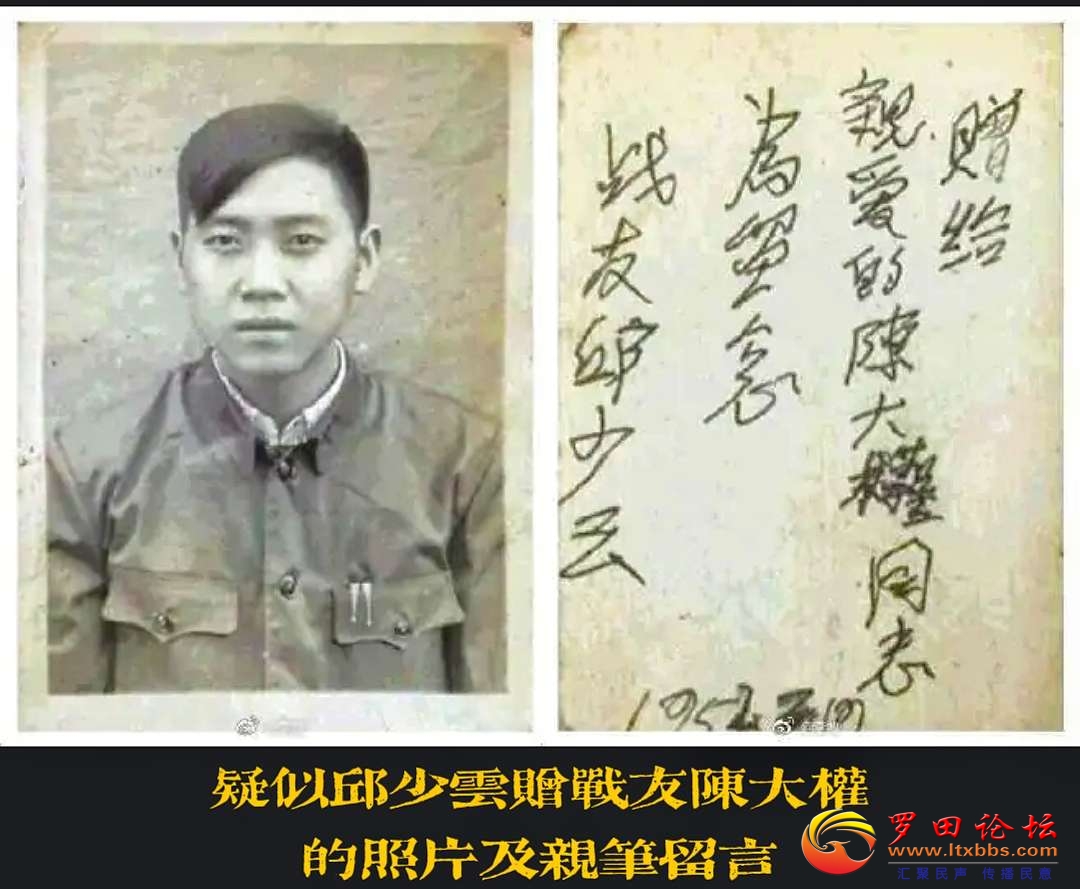 赠给
親爱的陳大權同志
为留念
战友邱少云
疑似邱少雲贈戰友陳大權
的照片及親筆留言
罗田论坛
www.ltxbbs.com
汇聚民声 传播民意